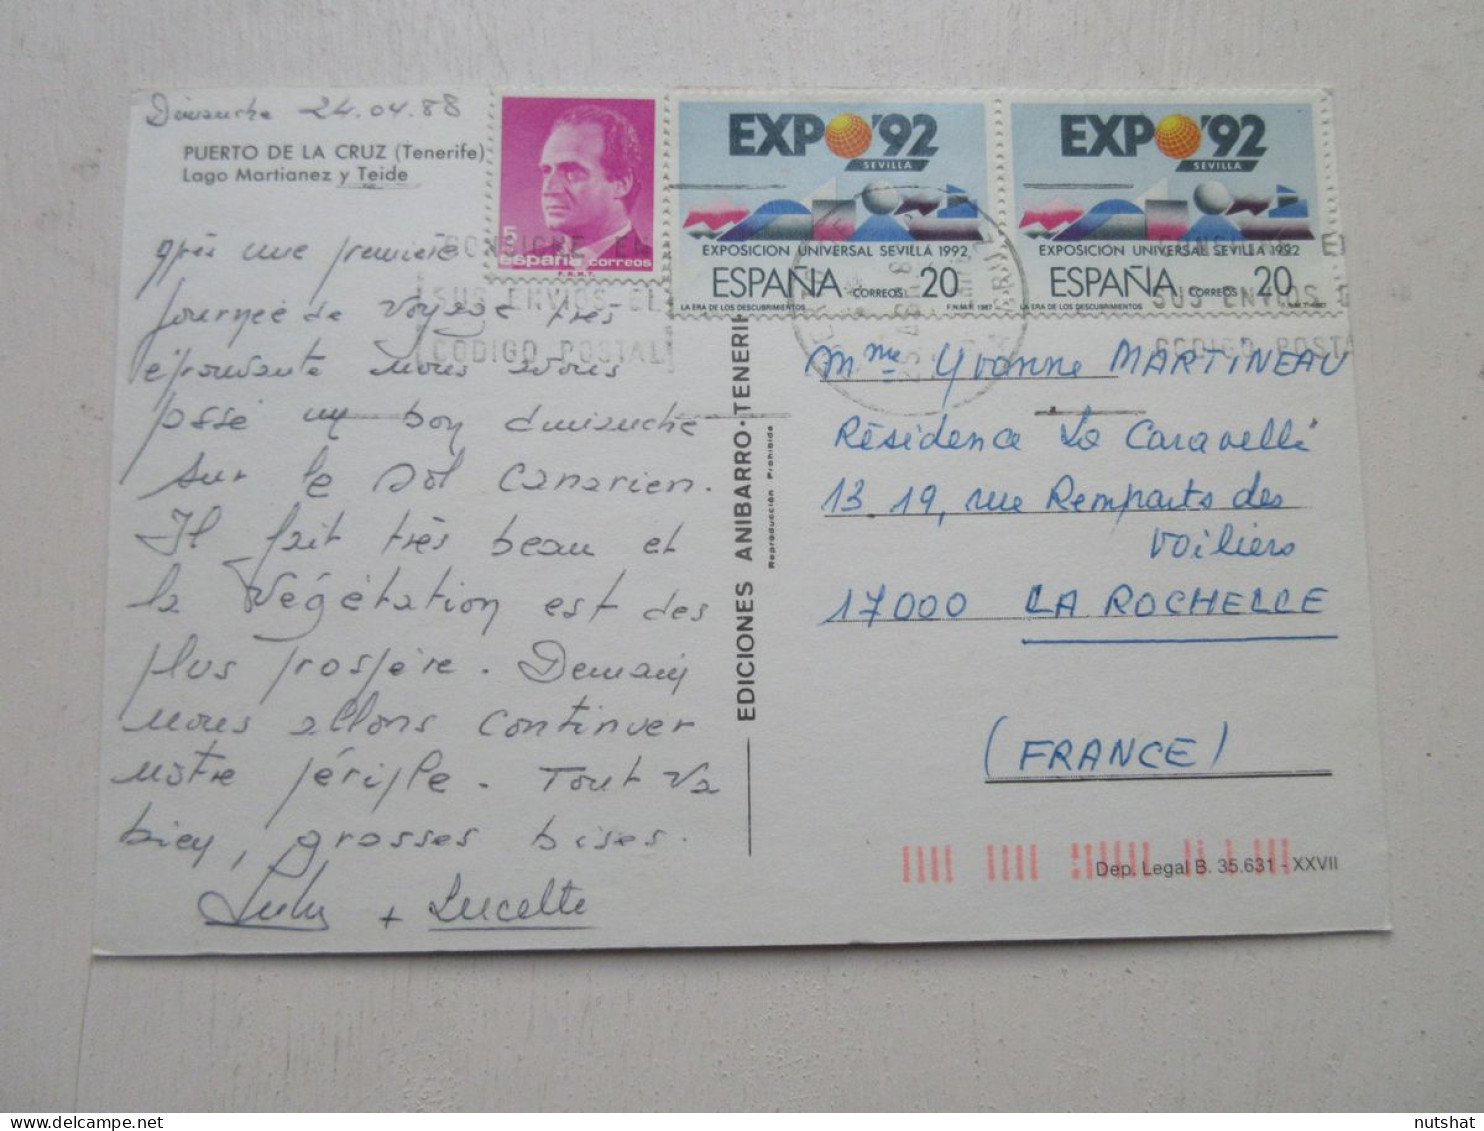 Dimanche 24.04.88
PUERTO DE LA CRUZ (Tenerife)
Lago Martianez y Teide
après une première
journée de voyage très
éprouvante nous avons
passé un bon dimanche
sur le sol canarien.
Il fait très beau et
la végétation est des
plus prospère. Demain
nous allons continuer
notre périple. Tout va
bien, grosses bises.
Lulu + Lucette
5
españa correos
F.N.M.T.
EXPO'92
SEVILLA
EXPOSICION UNIVERSAL SEVILLA 1992
ESPAÑA CORREOS 20
LA ERA DE LOS DESCUBRIMIENTOS F.N.M.T. 1987
EXPO'92
SEVILLA
EXPOSICION UNIVERSAL SEVILLA 1992
ESPAÑA CORREOS 20
LA ERA DE LOS DESCUBRIMIENTOS
CONSIGNE EN
SUS ENVIOS EL
CODIGO POSTAL
EDICIONES ANIBARRO - TENERIFE
Reproducción Prohibida
Mme Yvonne MARTINEAU
Résidence La Caravelle
13.19, rue Remparts des
Voiliers
17000 LA ROCHELLE
(FRANCE)
Dep. Legal B. 35.631 - XXVII
nutshat